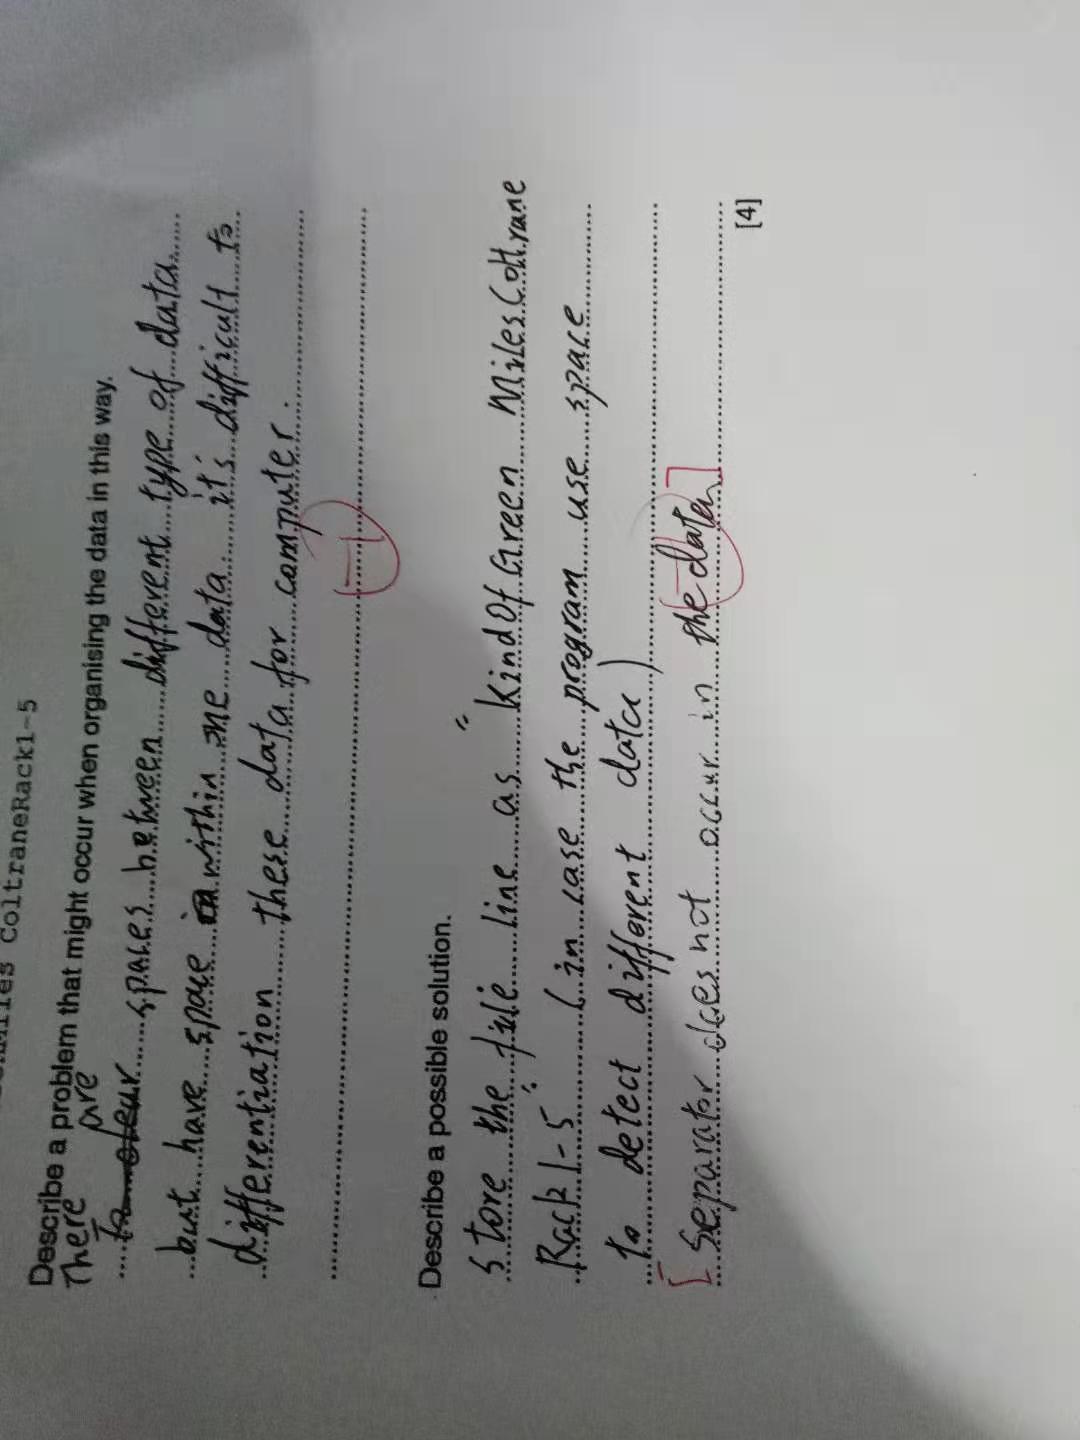 ColtraneRack1-5
Describe a problem that might occur when organising the data in this way.
There are
spaces between different type of data
but have space within one data. it's difficult to
differentiation these data for computer.
Describe a possible solution.
store the file line as "KindOfGreen MilesColtrane
Rack1-5" (in case the program use space
to detect different data)
[Separator does not occur in the data]
[4]